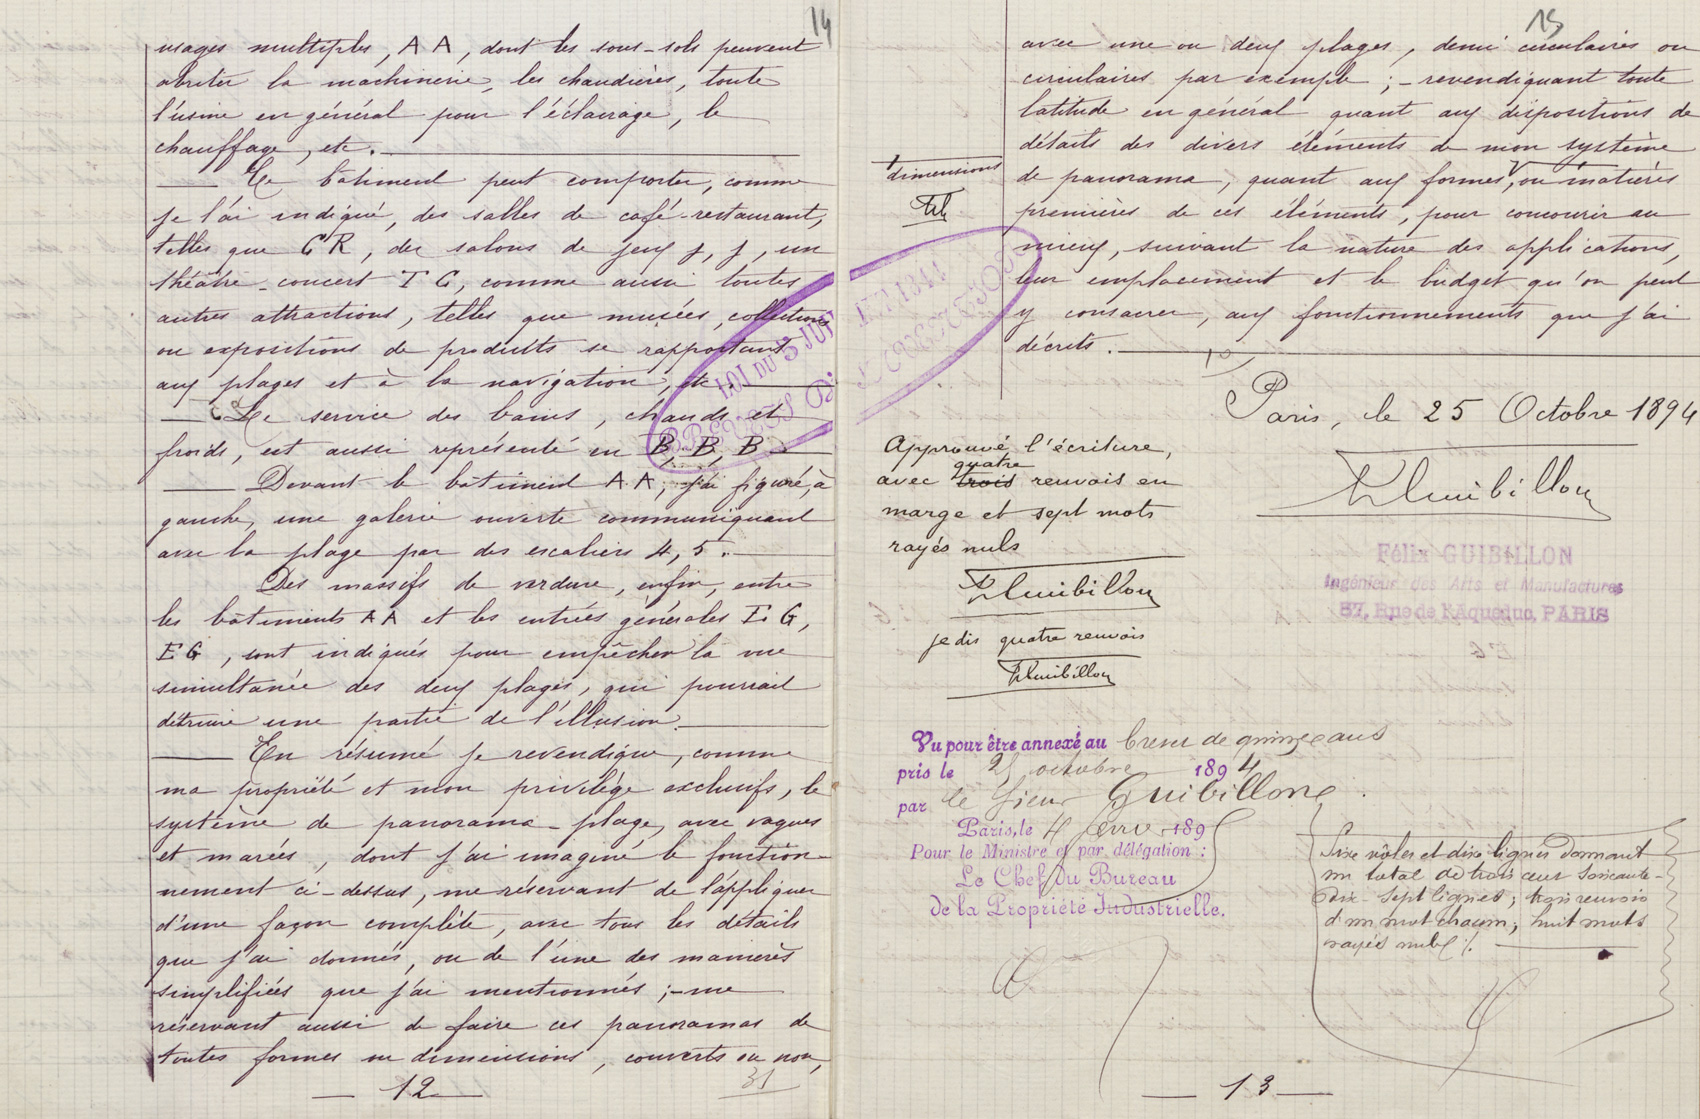 14
usages multiples, AA, dont les sous-sols peuvent
abriter la machinerie, les chaudières, toute
l'usine en général pour l'éclairage, le
chauffage, etc.
Ce bâtiment peut comporter, comme
je l'ai indiqué, des salles de café-restaurant,
telles que CR, des salons de jeux j, j, un
théâtre-concert TC, comme aussi toutes
autres attractions, telles que musées, collections
ou expositions de produits se rapportant
aux plages et à la navigation, etc.
Le service des bains, chauds et
froids, est aussi représenté en B, B, B
Devant le bâtiment AA, j'ai figuré, à
gauche, une galerie ouverte communiquant
avec la plage par des escaliers 4, 5.
Des massifs de verdure, enfin, entre
les bâtiments AA et les entrées générales EG,
EG, sont indiqués pour empêcher la vue
simultanée des deux plages, qui pourrait
détruire une partie de l'illusion.
En résumé je revendique, comme
ma propriété et mon privilège exclusifs, le
système de panorama-plage, avec vagues
et marées, dont j'ai imaginé le fonction-
nement ci-dessus, me réservant de l'appliquer
d'une façon complète, avec tous les détails
que j'ai donnés, ou de l'une des manières
simplifiées que j'ai mentionnées ;- me
réservant aussi de faire ces panoramas de
toutes formes ou dimensions, couverts ou non,
12
31
LOI DU 5 JUILLET 1844
BREVETS D'
15
avec une ou deux plages, demi circulaires ou
circulaires par exemple ;- revendiquant toute
latitude en général quant aux dispositions de
détails des divers éléments de mon système
de panorama, quant aux formes, ou matières
dimensions
premières de ces éléments, pour concourir au
mieux, suivant la nature des applications,
leur emplacement et le budget qu'on peut
y consacrer, aux fonctionnements que j'ai
décrits.
Paris, le 25 Octobre 1894
Guibillon
Félix GUIBILLON
Ingénieur des Arts et Manufactures
87, Rue de l'Aqueduc, PARIS
Approuvé l'écriture,
quatre
avec trois renvois en
marge et sept mots
rayés nuls
Guibillon
je dis quatre renvois
Guibillon
Vu pour être annexé au brevet de quinze ans
pris le 25 octobre 1894
par le Sieur Guibillon
Paris, le 4 Janv 1895
Pour le Ministre et par délégation :
Le Chef du Bureau
de la Propriété Industrielle.
Six rôles et dix lignes donnant
un total de trois cent soixante-
dix-sept lignes ; trois renvois
d'un mot chacun ; huit mots
rayés nuls ./.
13